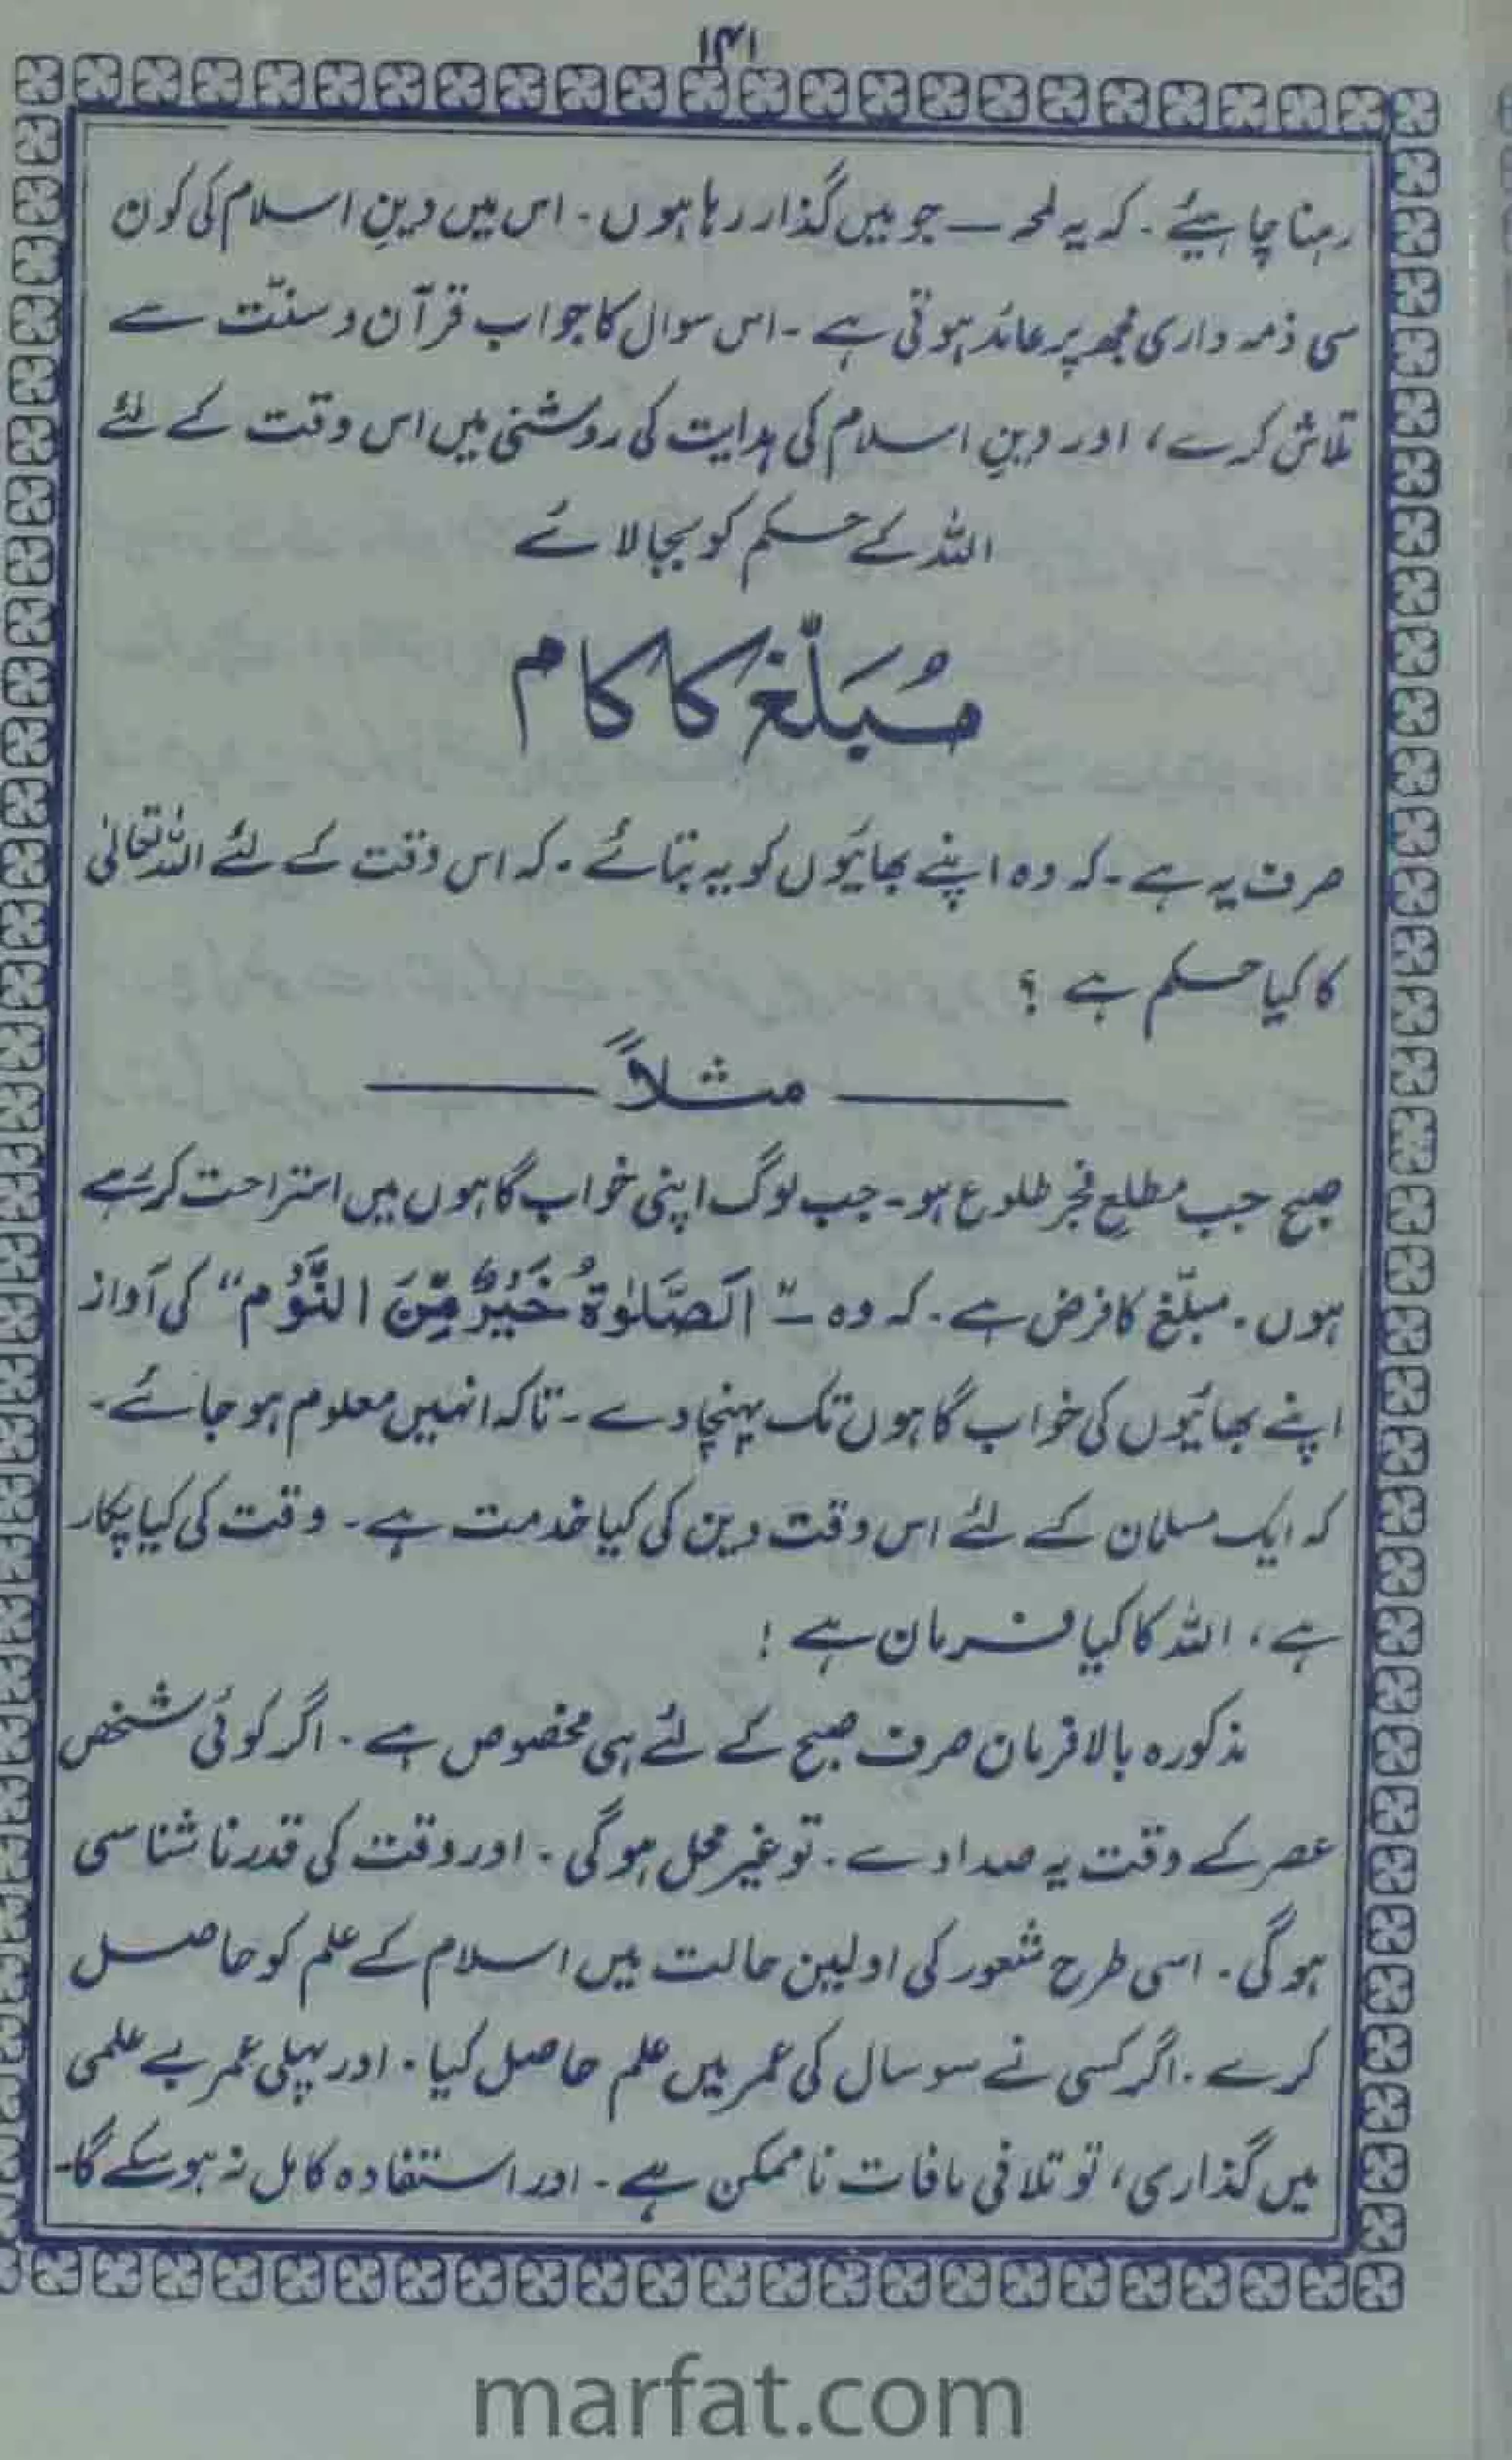 ۱۴۱
رہنا چاہیئے ۔ کہ یہ لمحہ ــ جو میں گذار رہا ہوں ۔ اس میں دینِ اسلام کی کون
سی ذمہ داری مجھ پر عائد ہوتی ہے ۔ اس سوال کا جواب قرآن و سنّت سے
تلاش کرے ، اور دینِ اسلام کی ہدایت کی روشنی میں اس وقت کے لئے
اللہ کے حکم کو بجا لائے
مُبَلّغ کا کام
صرف یہ ہے ۔ کہ وہ اپنے بھائیوں کو یہ بتائے ۔ کہ اس وقت کے لئے اللہ تعالٰی
کا کیا حکم ہے ؟
——— مثلاً ———
صبح جب مطلعِ فجر طلوع ہو ۔ جب لوگ اپنی خواب گاہوں میں استراحت کر رہے
ہوں ۔ مبلّغ کا فرض ہے ۔ کہ وہ ــ " اَلصَّلوٰةُ خَیْرٌ مِّنَ النَّوْم " کی آواز
اپنے بھائیوں کی خواب گاہوں تک پہنچا دے ۔ تاکہ انہیں معلوم ہو جائے ۔
کہ ایک مسلمان کے لئے اس وقت دین کی کیا خدمت ہے ۔ وقت کی کیا پکار
ہے ، اللہ کا کیا فرمان ہے !
مذکورہ بالا فرمان صرف صبح کے لئے ہی مخصوص ہے ۔ اگر کوئی شخص
عصر کے وقت یہ صدا دے ۔ تو غیر محل ہوگی ۔ اور وقت کی قدر ناشناسی
ہوگی ۔ اسی طرح شعور کی اولین حالت میں اسلام کے علم کو حاصل
کرے ۔ اگر کسی نے سو سال کی عمر میں علم حاصل کیا ۔ اور پہلی عمر بے علمی
میں گذاری ، تو تلافی مافات ناممکن ہے ۔ اور استفادہ کامل نہ ہو سکے گا ۔
marfat.com